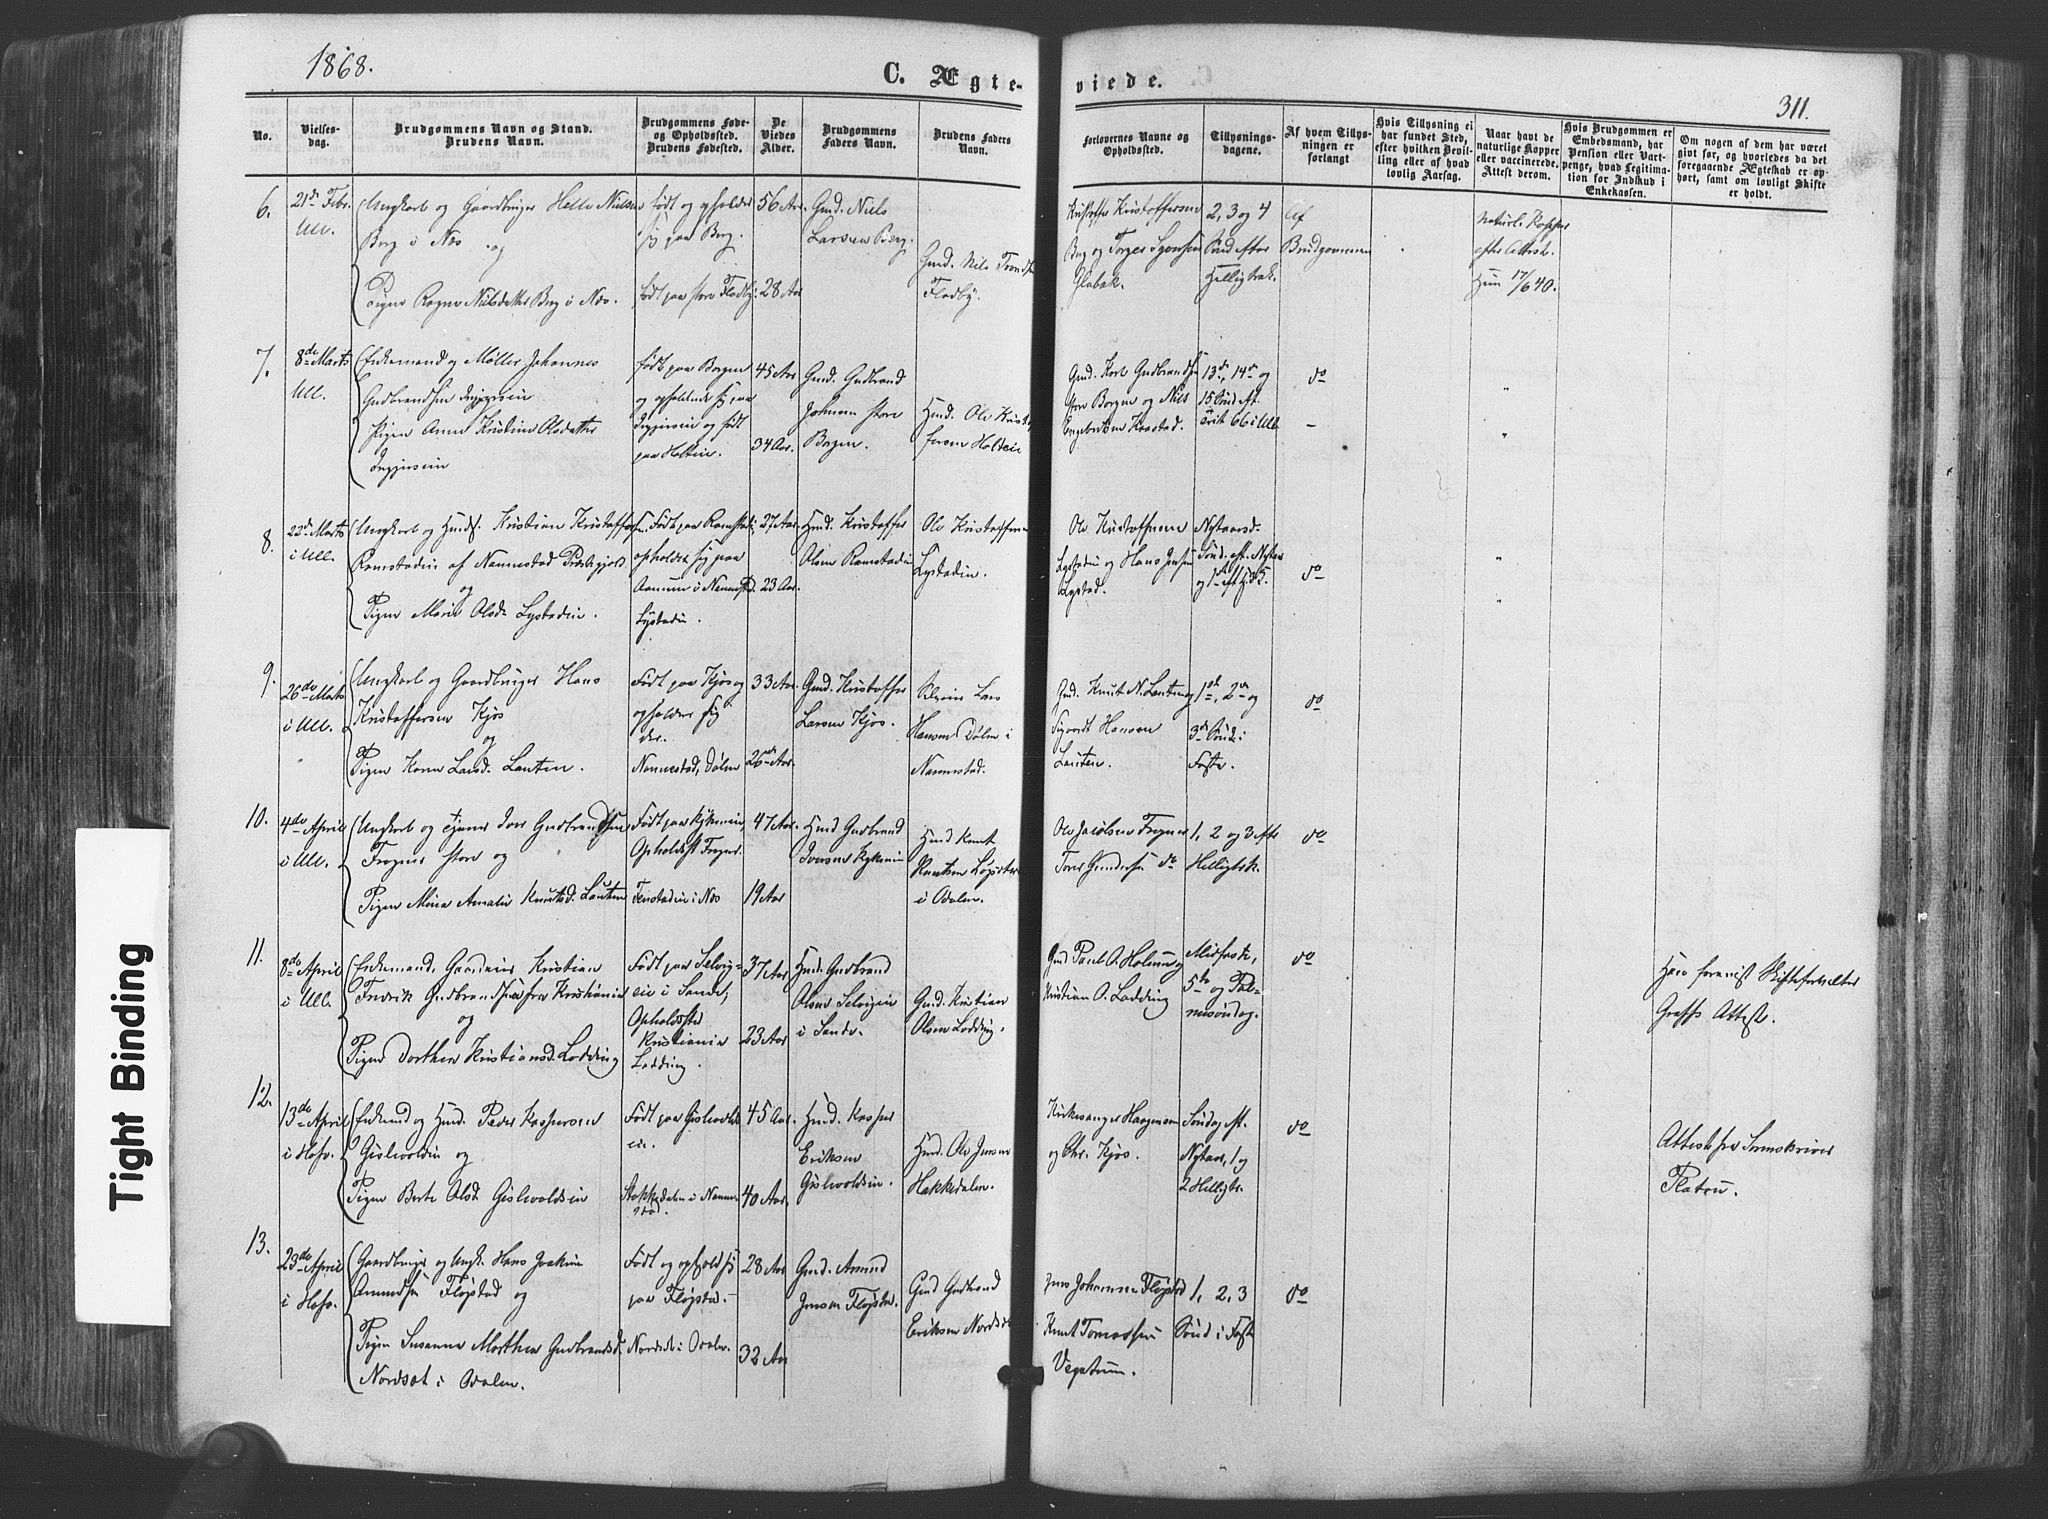 1868.
C. Ægte-
viede.
311.
No.
Vielses-
dag.
Brudgommens Navn og Stand.
Brudens Navn.
Brudgommens Føde-
og Opholdssted.
Brudens Fødested.
De
Viedes
Alder.
Brudgommens
Faders Navn.
Brudens Faders
Navn.
Forlovernes Navne og
Opholdssted.
Tillysnings-
dagene.
Af hvem Tillys-
ningen er
forlangt
Hvis Tillysning ei
har fundet Sted,
efter hvilken Bevil-
ling eller af hvad
lovlig Aarsag.
Naar havt de
naturlige Kopper
eller vaccinerede.
Attest derom.
Hvis Brudgommen er
Embedsmand, har han
Pension eller Vart-
penge, hvad Legitima-
tion for Indskud i
Enkekassen.
Om nogen af dem har været
gift før, og hvorledes da det
foregaaende Ægteskab er op-
hørt, samt om lovligt Skifte
er holdt.
6.
21de Febr.
Ull.
Ungkarl og Gaardbruger Helle Nielsen
Berg i Næs og
Pigen Ragne Nilsdatter Berg i Næs.
født og opholder
sig paa Berg.
født paa store Flodby
56 Aar
28 Aar
Gmd. Niels
Larsen Berg.
Gmd. Nils
Flodby.
Kristoffer Kristoffersen
Berg og Torger Syversen
Globak.
2, 3 og 4
Sønd. efter
Helligtrek.
Af
Brudgommen
naturl. Kopper
efter Attest.
Hun 17/6 40.
7.
8de Marts
Ull.
Enkemand og Møller Johannes
Gudbrandsen
Pigen Anne Kristine Olsdatter
født paa Borgen
og opholdende sig paa
og født
paa Holtein.
45 Aar
34 Aar.
Gmd. Gudbrand
Johnsen store
Borgen.
Hmd. Ole Kristof-
fersen Holtein
Gmd. Karl Gudbrandsen
store Borgen og Nils
Engebretsen
13de, 14de og
15 Sønd. eft.
Trit. 66 i Ull.
do
8.
22de Marts
i Ull.
Ungkarl og Hmds. Kristian Kristoffersen
Ramstadeie af Nannestad Præstegjeld
og
Pigen Marie Olsd. Lystadeie.
Født paa Ramstadeie,
opholder sig paa
Aamum i Nannestad.
Lystadeie.
27 Aar.
23 Aar.
Hmd. Kristoffer
Olsen Ramstadeie
Ole Kristoffersen
Lystadeie.
Ole Kristoffersen
Lystadeie og Hans Jensen
Lystad.
Nytaarsd.
Sønd. eft. Nytaar
og 1ste eft. H. 3 K.
do
9.
26de Marts
i Ull.
Ungkarl og Gaardbruger Hans
Kristoffersen Kjos
og
Pigen Karen Larsd. Lauten.
Født paa Kjos og
opholder sig
der.
Nannestad, Dølen
33 Aar
26 Aar.
Gmd. Kristoffer
Larsen Kjos.
Lars
Hansen Dølen i
Nannestad.
Gmd. Knut N. Lauten og
Sigvardt Hansen
Lauten.
1ste, 2den og
3de Sønd. i
Faste.
do
10.
4de April
i Ull.
Ungkarl og tjener Iver Gudbrandsen
Frogner store og
Pigen Mina Amalie Knutsd. Lauten
Født paa Kykneie,
Opholdsst. Frogner.
Tenstadeie i Næs
47 Aar.
19 Aar
Hmd Gudbrand
Iversen Kykneie
Hmd Knut
Knutsen
i Odalen.
Ole Jacobsen Frogner
Tores Gundersen do
1, 2 og 3 efter
Helligtrk.
do
11.
8de April
i Ull.
Enkemand, Gaardeier Kristian
Fredrik Gudbrandsen fra Kristiania
og
Pigen Dorthea Kristiansd. Lodding
Født paa Selvig-
eie i Sande;
Opholdssted
Kristiania
Lodding.
37 Aar
23 Aar
Hmd. Gudbrand
Olsen Selvigeie
i Sande.
Gmd. Kristian
Olsen Lodding.
Gmd Paul A. Holum og
Kristian O. Lodding
Midfaste,
5te og Pal-
mesøndag.
do
Har forevist Skifteforvalter
Græffs Attest.
12.
13de April
i Hofv.
Enkemd og Hmd. Peder Kaspersen
Gislevoldeie og
Pigen Berte Olsd. Gislevoldseie
Født paa Gislevolds-
eie.
Stokkedalen i Nanne-
stad.
45 Aar.
40 Aar.
Hmd. Kasper
Eriksen
Gislevoldseie.
Hmd. Ole Jensen
Hakkedalen.
Kirkesanger Haagensen
og Chr. Kjos.
Søndag eft.
Nytaar, 1 og
2 Helligtr.
do
Attest fra Sorenskriver
Platou.
13.
23de April
i Hofv.
Gaardbruger og Ungk. Hans Joakim
Amundsen Fløjstad og
Pigen Susanne Marthea Gudbrandsd.
Nordset i Odalen.
Født og ophold sig
paa Fløjstad.
Nordset i Odalen.
28 Aar
32 Aar
Gmd. Amund
Jensen Fløjstad.
Gmd Gudbrand
Eriksen Nordset
Jens Johannesen Fløjstad
Knut Tomassen
Vegstum.
1, 2, 3
Sønd i Faste
do
Tight Binding